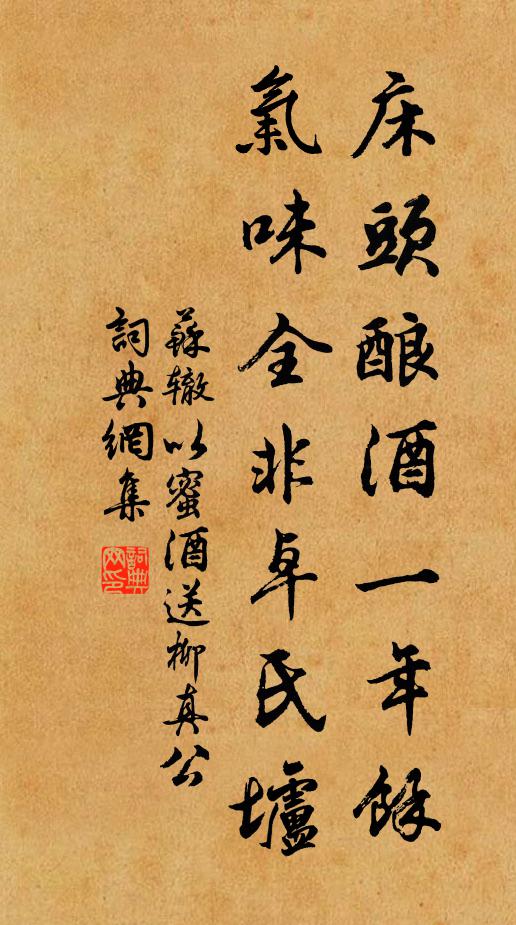 床頭酿酒一年餘
氣味全非卓氏壚
蘇辙以蜜酒送柳真公
詞典網集
詞典網印